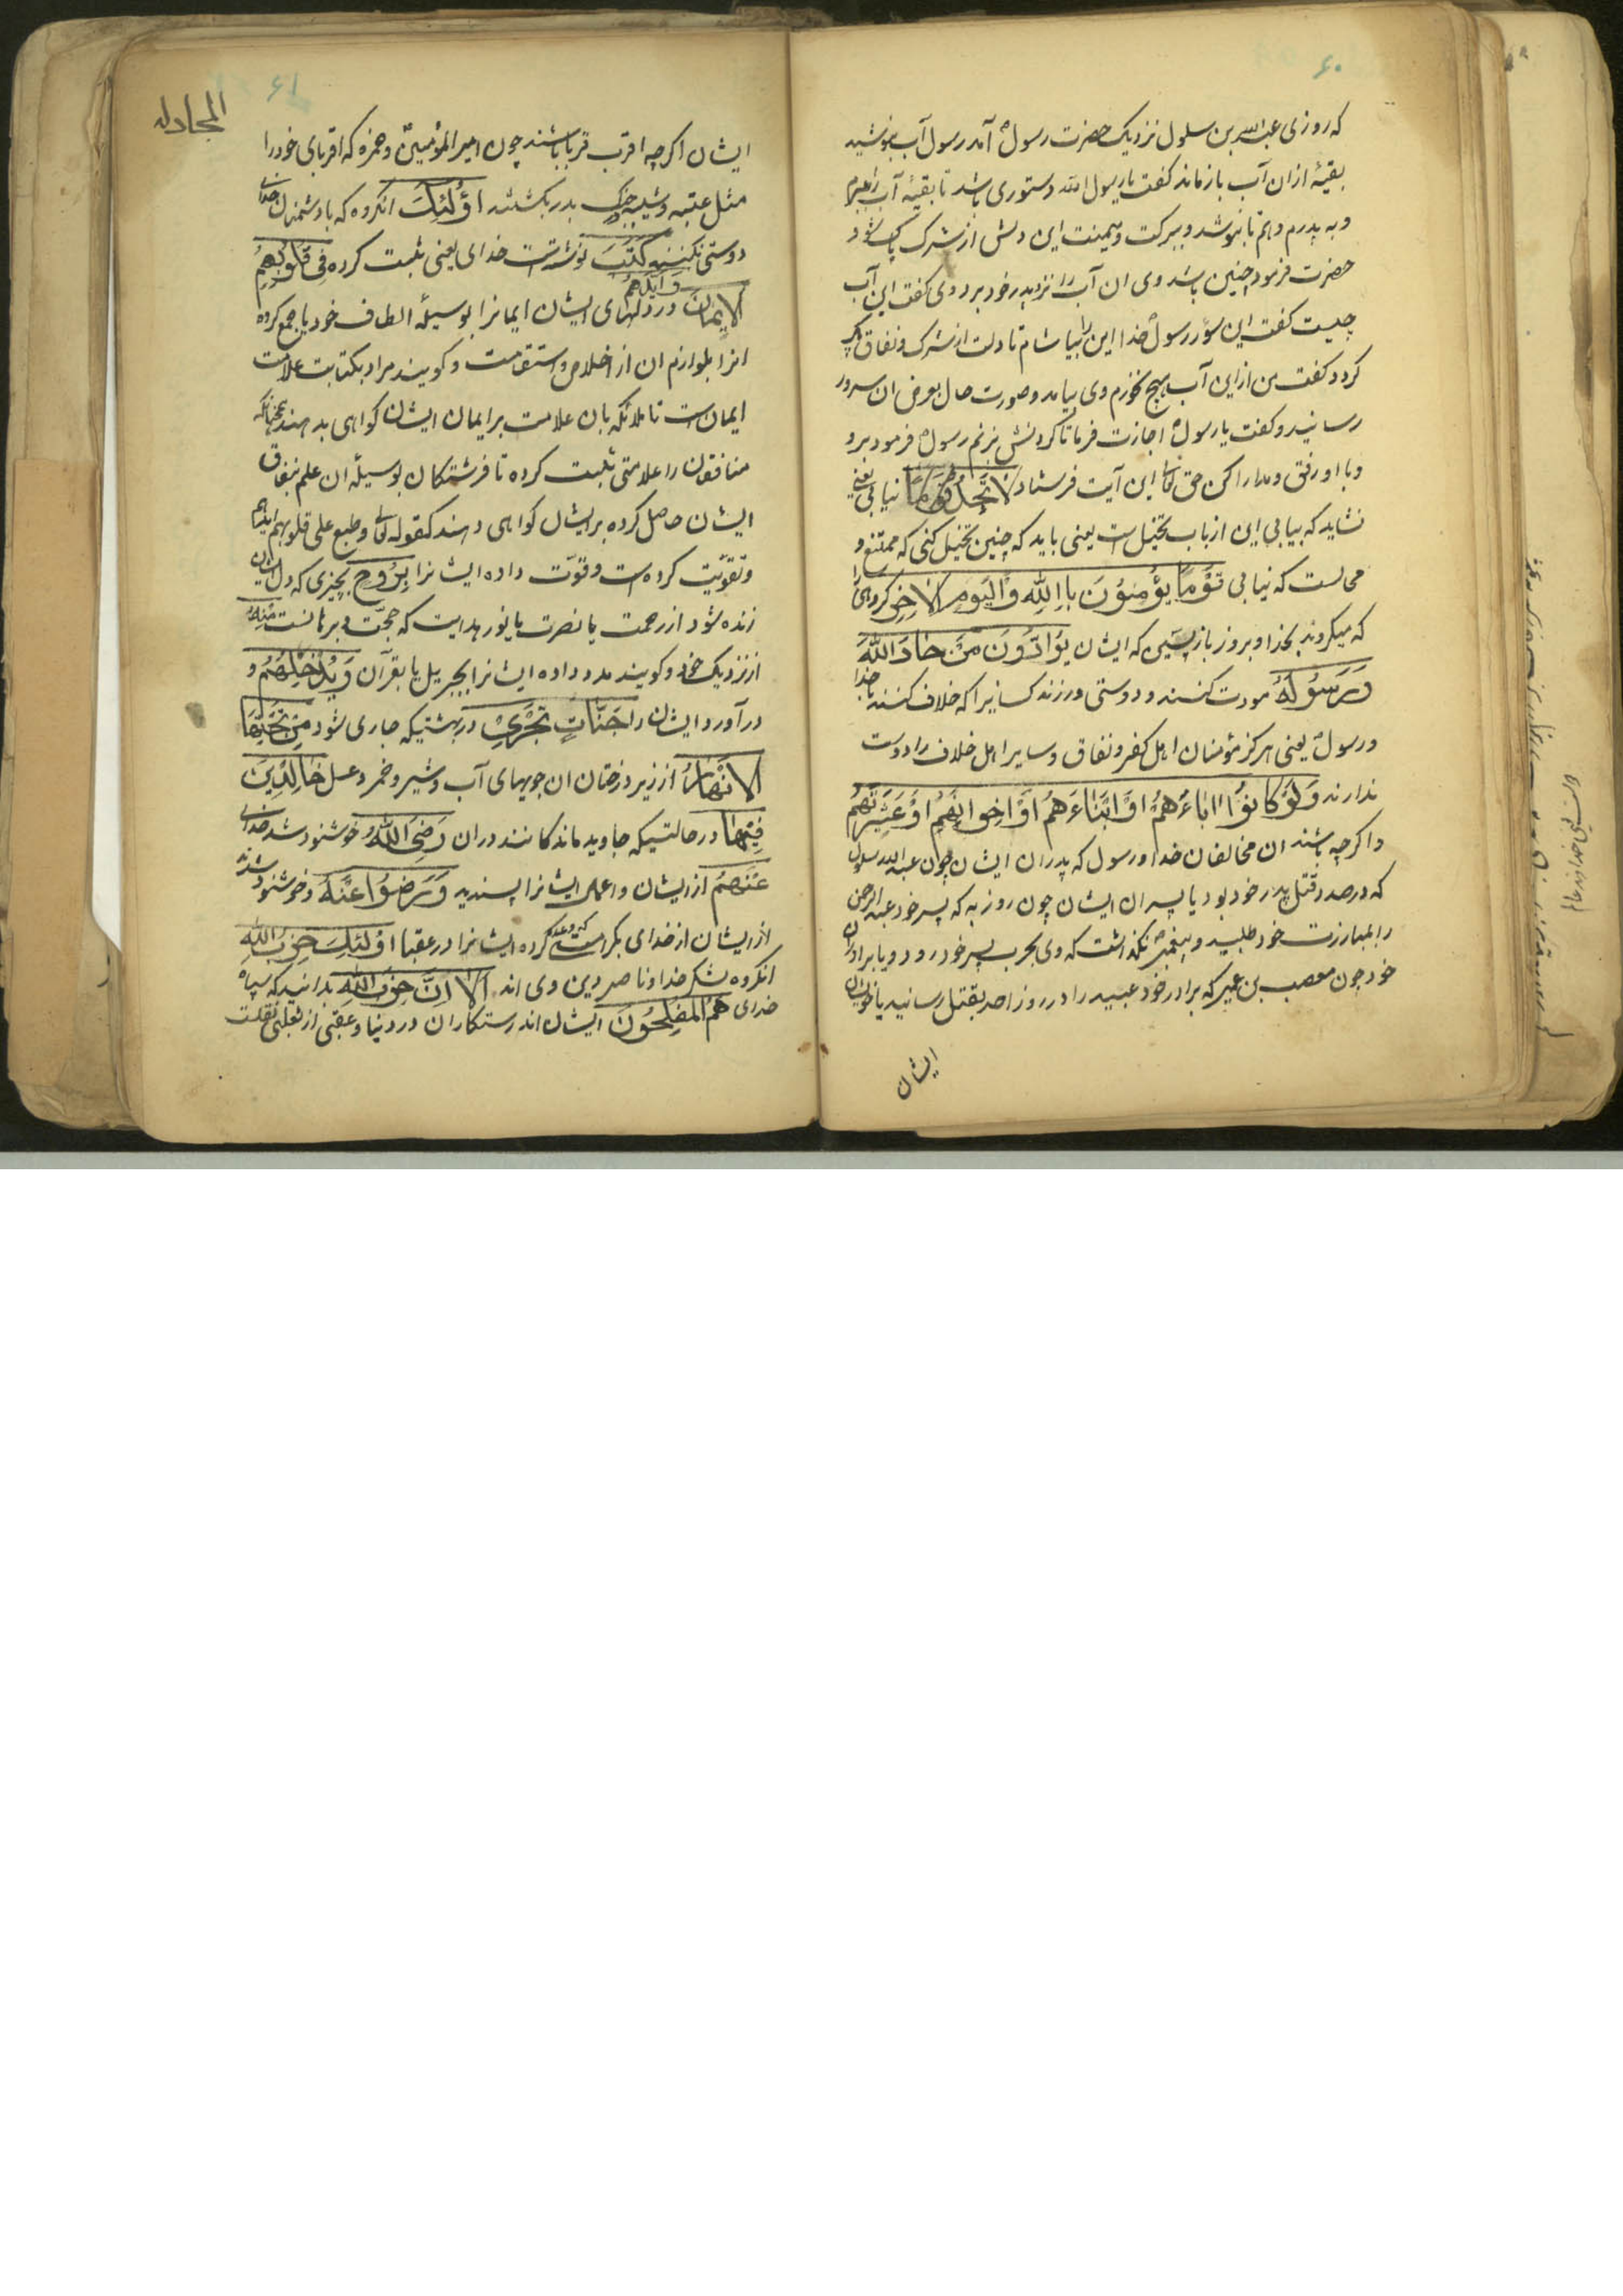 ۶۰
که روزی عبدالله بن سلول نزدیک حضرت رسول آمد رسول آب بنوشید
بقیهٔ ازان آب باز ماند کفت یا رسول الله دستوری باشد تا بقیهٔ آب را ببرم
و به پدرم دهم تا بنوشد و ببرکت و میمنت این دلش از شرک پاک شود
حضرت فرمود چنین باشد وی ان آب را نزد پدر خود برد وی کفت این آب
چیست کفت این سؤر رسول خدا این را بیاشام تا دلت از شرک و نفاق پاک
کردد کفت من ازین آب هیچ نخورم وی بیامد و صورت حال بعرض ان سرور
رسانید و کفت یا رسول اجازت فرما تا کردنش بزنم رسول فرمود برو
و با او رفق و مدارا کن حق تعالی این آیت فرستاد لا تَجِدُ قَوْمًا نیابی یعنی
نشاید که بیابی این از باب تخیّل است یعنی باید که چنین تخیّل کنی که ممتنع و
محالست که نیابی قَوْمًا یُؤْمِنُوْنَ بِاللّٰهِ وَالْیَوْمِ الاٰخِرِ کروهی را
که میکروند بخدا و بروز بازپسین که ایشان یُوَادُّوْنَ مَنْ حَادَّ اللّٰهَ
وَرَسُوْلَهُ مودت کنند و دوستی ورزند کسانیرا که خلاف کنند با خدا
و رسول یعنی هرکز مؤمنان اهل کفر و نفاق و سایر اهل خلاف را دوست
ندارند وَلَوْ کَانُوْا اٰبَاءَهُمْ اَوْ اَبْنَاءَهُمْ اَوْ اِخوَانَهُمْ اَوْ عَشِیْرَتَهُمْ
و اکرچه باشند ان مخالفان خدا و رسول که پدران ایشان چون عبدالله سلول
که در صدد قتل پدر خود بود یا پسران ایشان چون روز به که پسر خود عبدالرحمن
را بمبارزت خود طلبید و پیغمبر نکذاشت که وی بحرب پسر خود رود و یا برادران
خود چون معصب بن عمیر که برادر خود عبید را در روز احد بقتل رسانید یا خویشان
ایشان
۶۱
المجادله
ایشان اکرچه اقرب قربا باشند چون امیر المؤمنین و حمزه که اقربای خود را
مثل عتبه و شیبه در جنک بدر بکشتند اُوْلٰئِکَ انکروه که با دشمنان خدای
دوستی نکنند کَتَبَ نوشته است خدای یعنی ثبت کرده فِیْ قُلُوْبِهِمُ
وَاَیَّدَهُمْ
الْاِیْمَانَ در دلهای ایشان ایمانرا بوسیلهٔ الطاف خود یا جمع کرده
انرا بلوازم ان از اخلاص و استقامت و کویند مراد بکتابت علامت
ایمان است تا ملائکه بان علامت بر ایمان ایشان کواهی بدهند همچنانکه
منافقون را علامتی ثبت کرده تا فرشتکان بوسیلهٔ ان علم بنفاق
ایشان حاصل کرده بر ایشان کواهی دهند کقوله تعالی و طبع علی قلوبهم
و تقویّت کرده است و قوّت داده ایشانرا بِرُوْحٍ بچیزی که دل ایشان
زنده شود از رحمت یا نصرت یا نور هدایت که حجّت و برهانست مِنْهُ
از نزدیک خود و کویند مدد داده ایشانرا بجبریل یا بقرآن وَیُدْخِلُهُمْ و
درآورد ایشان را جَنَّاتٍ تَجْرِیْ در بهشتیکه جاری شود مِنْ تَحْتِهَا
الْاَنْهَارُ از زیر درختان ان جویهای آب و شیر و خمر و عسل خَالِدِیْنَ
فِیْهَا در حالتیکه جاوید ماندکانند دران رَضِیَ اللّٰهُ خوشنود شد خدای
عَنْهُمْ از ایشان و اعمال ایشانرا پسندید وَرَضُوْا عَنْهُ و خوشنود شدند
از ایشان از خدای بکرامتی که وعده کرده ایشانرا در عقبا اُوْلٰئِکَ حِزْبُ اللّٰهِ
انکروه لشکر خدا و ناصر دین وی اند اَلاٰ اِنَّ حِزْبَ اللّٰهِ بدانید که سپاه
خدای هُمُ الْمُفْلِحُوْنَ ایشان اند رستکاران در دنیا و عقبی از ثعلبی نقلست